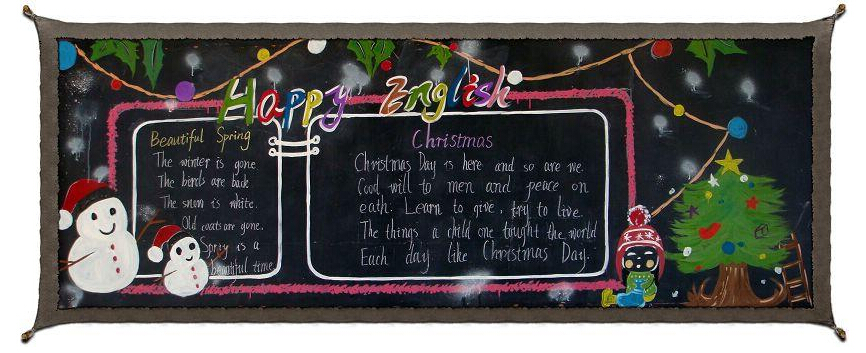 Happy English
Beautiful Spring
The winter is gone
The birds are back
The snow is white.
Old coats are gone.
Spring is a
beautiful time
Christmas
Christmas Day is here and so are we.
Good will to men and peace on
eath. Learn to give, try to live
The things a child one taught the world
Each day like Christmas Day.